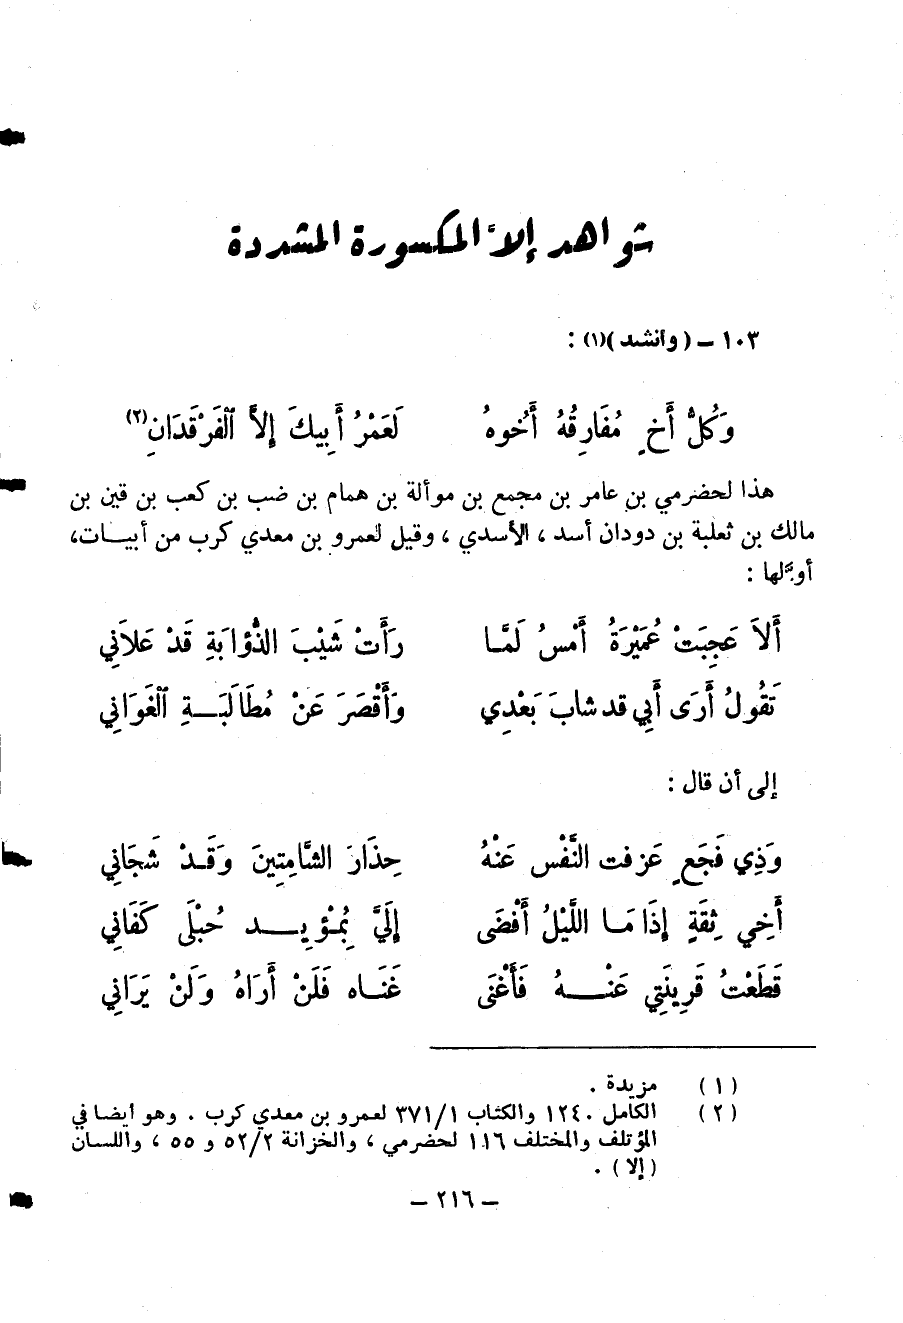 شواهد إلاّ المكسورة المشددة
١٠٣ – (وأنشد)(١) :
وَكُلُّ أَخٍ مُفَارِقُهُ أَخُوهُ لَعَمْرُ أَبِيكَ إِلاَّ ٱلْفَرْقَدَانِ(٢)
هذا لحضرمي بن عامر بن مجمع بن موألة بن همام بن ضب بن كعب بن قين بن
مالك بن ثعلبة بن دودان أسد ، الأسدي ، وقيل لعمرو بن معدي كرب من أبيات،
أوَّلها :
أَلاَ عَجِبَتْ عُمَيْرَةُ أَمْسُ لَمَّا رَأَتْ شَيْبَ الذُّؤابَةِ قَدْ عَلاَنِي
تَقُولُ أَرَى أَبِي قد شابَ بَعْدِي وَأَقْصَرَ عَنْ مُطَالَبَةِ ٱلْغَوَانِي
إلى أن قال :
وَذِي فَجَعٍ عَزفت النَّفْس عَنْهُ حِذَارَ الشَّامِتِينَ وَقَدْ شَجَانِي
أَخِي ثِقَةٍ إِذَا مَا اللَّيْلُ أَفْضَى إِلَيَّ بِمُؤْيِدٍ حُبْلَى كَفَانِي
قَطَعْتُ قَرِينَتِي عَنْهُ فَأَغْنَى غَنَاه فَلَنْ أَرَاهُ وَلَنْ يَرَانِي
(١) مزيدة .
(٢) الكامل ١٢٤٠ والكتاب ٣٧١/١ لعمرو بن معدي كرب . وهو أيضا في
المؤتلف والمختلف ١١٦ لحضرمي ، والخزانة ٥٢/٢ و ٥٥ ، واللسان
(إلا) .
– ٢١٦ –